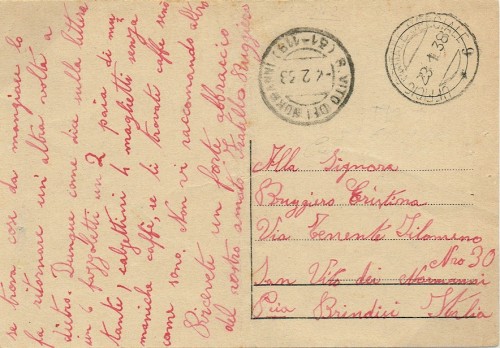 se trova con da mangiare lo
fa ritornare un'altra volta a
dietro. Dunque come dice sulla lettera
in 6 fazzoletti un 2 paia di mu
tante, calzettini 4 maglietti senza
maniche caffè, se li trovate caffè se no
come sono. Non vi raccomando altro
Ricevete un forte abbraccio
del vostro amato fratello Ruggiero
S. VITO DEI NORMANNI
(81-119)
-4.2.33
23.1.38
9
Alla Signora
Ruggiero Cristina
Via Tenente Filomeno
Nro 30
San Vito dei Normanni
Pcia Brindisi Italia